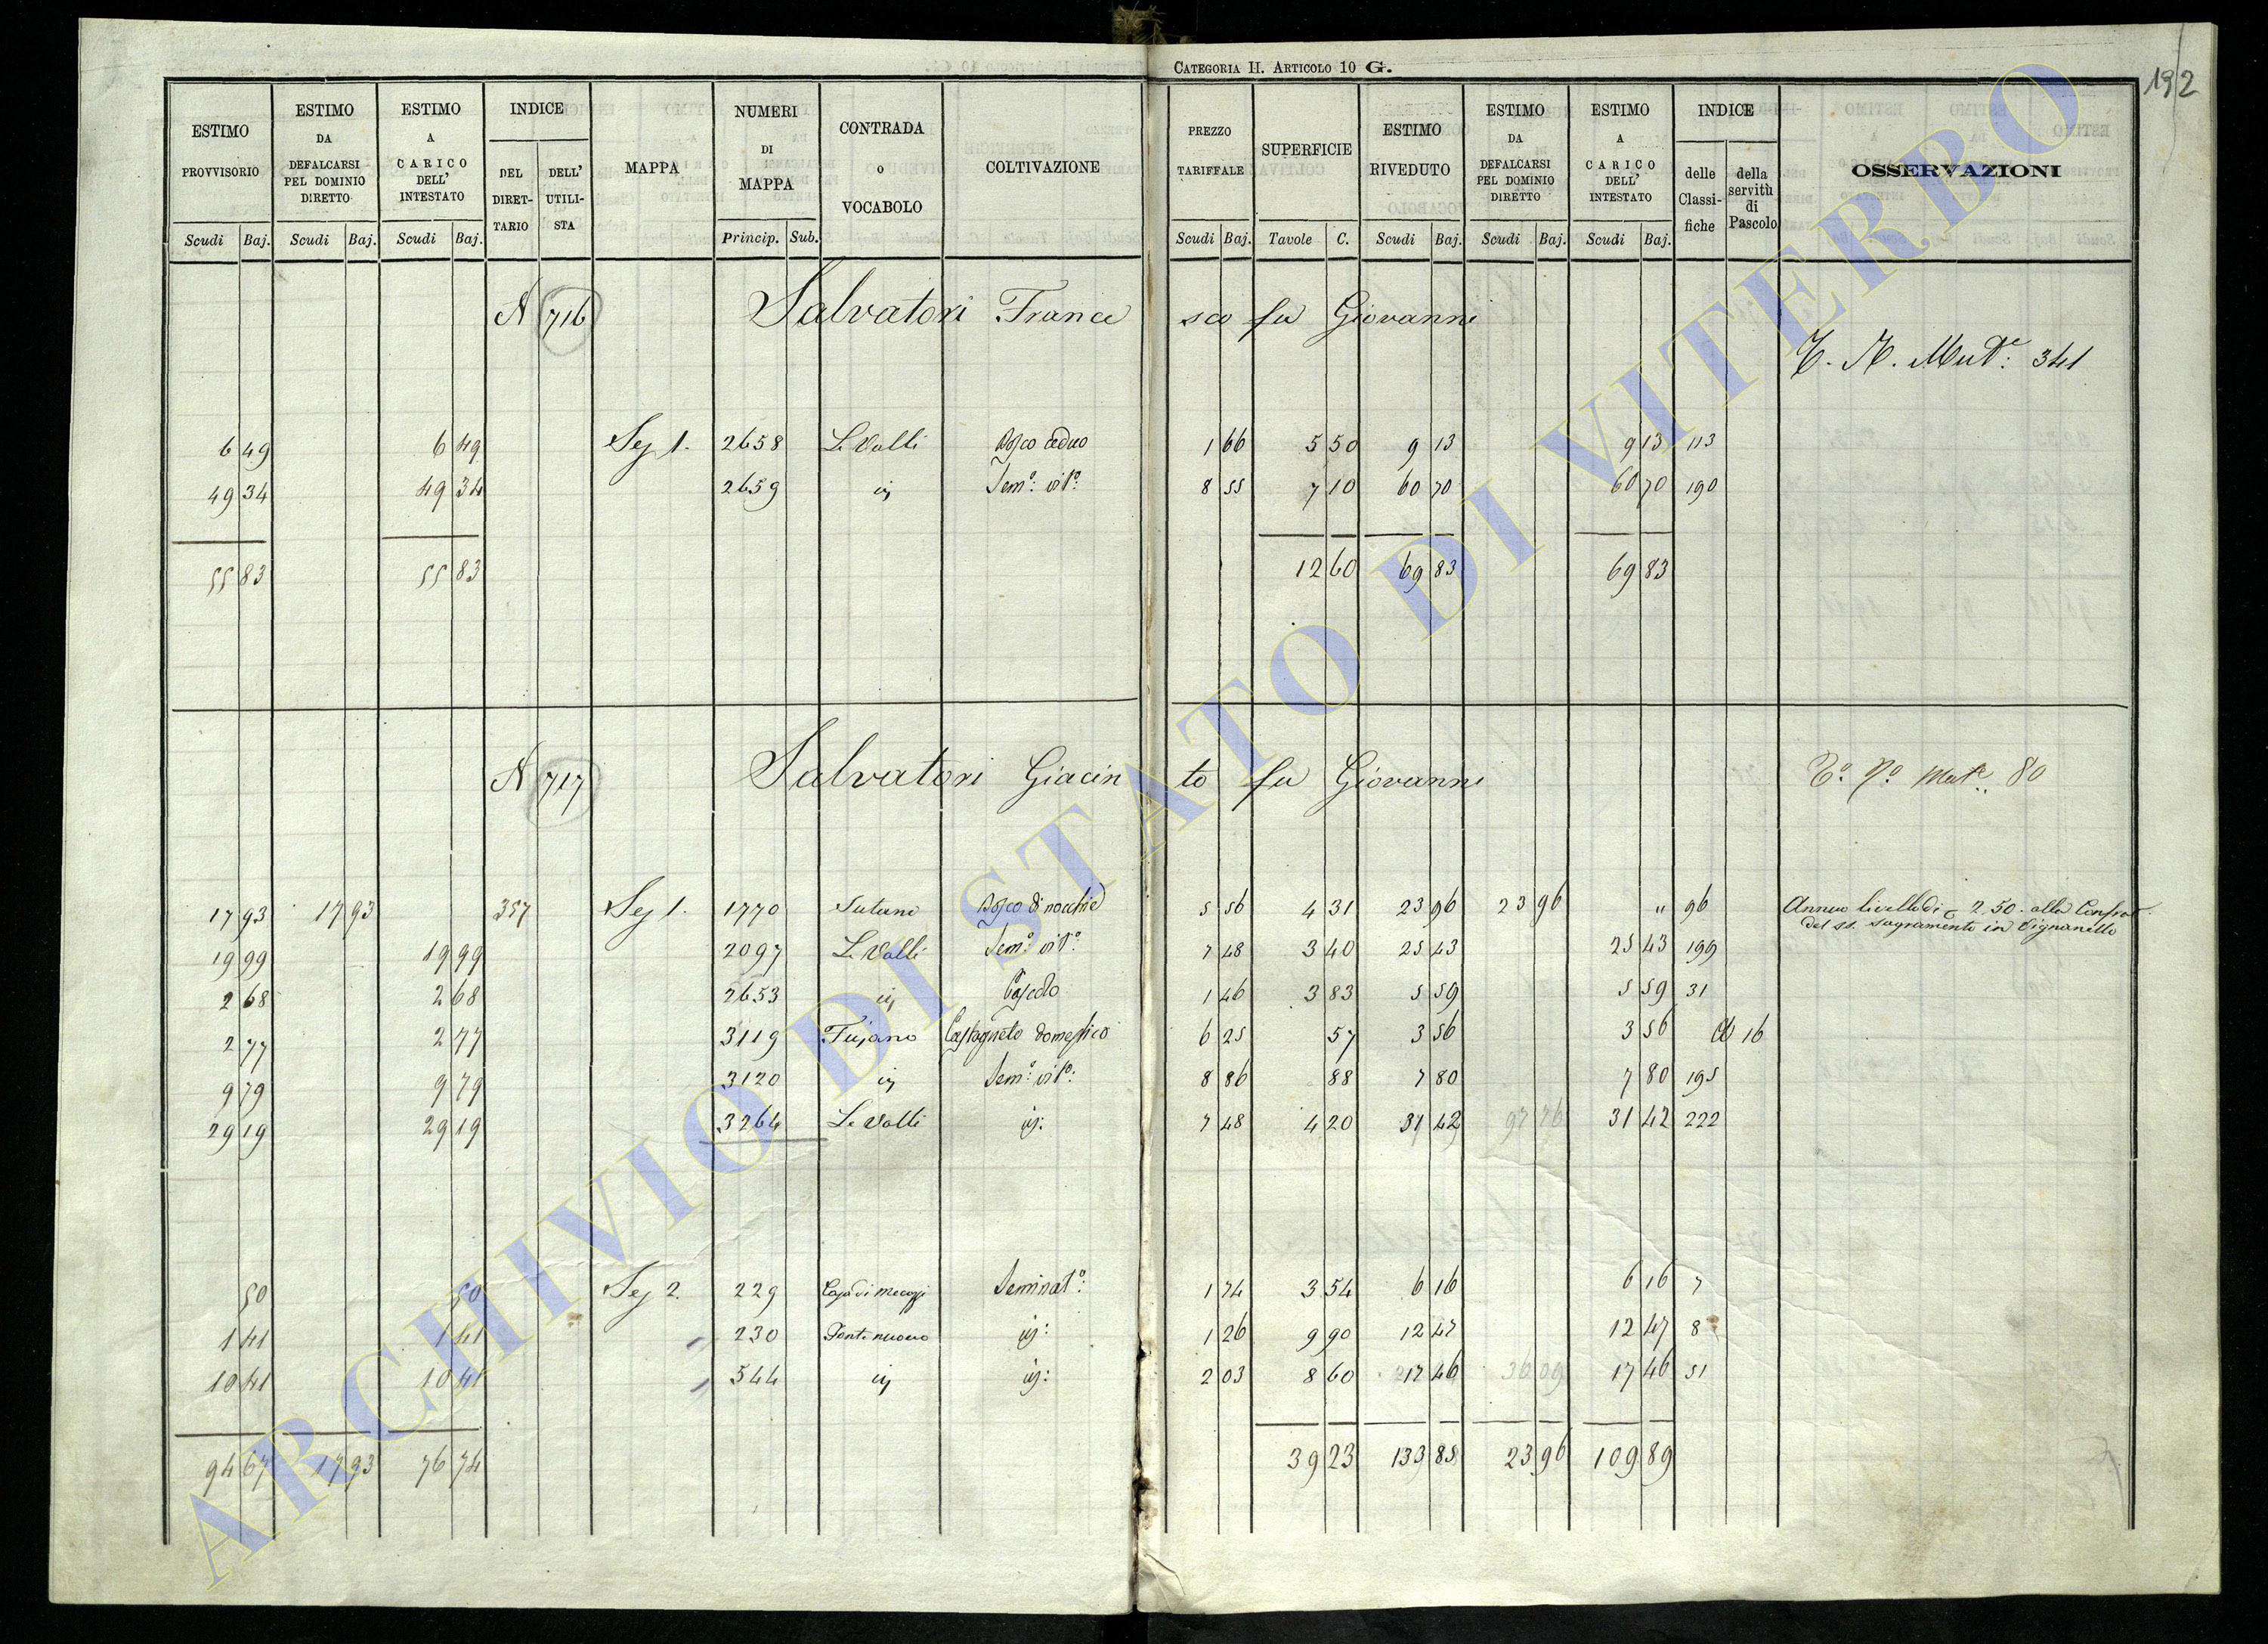 CATEGORIA II. ARTICOLO 10 G.
192
ESTIMO PROVVISORIO | ESTIMO DA DEFALCARSI PEL DOMINIO DIRETTO | ESTIMO A CARICO DELL' INTESTATO | INDICE | MAPPA | NUMERI DI MAPPA | CONTRADA O VOCABOLO | COLTIVAZIONE | PREZZO TARIFFALE | SUPERFICIE | ESTIMO RIVEDUTO | ESTIMO DA DEFALCARSI PEL DOMINIO DIRETTO | ESTIMO A CARICO DELL' INTESTATO | INDICE | OSSERVAZIONI
DEL DIRETTARIO | DELL' UTILISTA | delle Classifiche | della servitù di Pascolo
Scudi | Baj. | Scudi | Baj. | Scudi | Baj. | Princip. | Sub. | Scudi | Baj. | Tavole | C. | Scudi | Baj. | Scudi | Baj. | Scudi | Baj.
N 716 Salvatori Francesco fu Giovanni
341
6 49 | 6 49 | Sez 1. | 2658 | Le Valli | Bosco ceduo | 1 66 | 5 50 | 9 13 | 9 13 | 113
49 34 | 49 34 | 2659 | Sem.º vit.º | 8 55 | 7 10 | 60 70 | 60 70 | 190
55 83 | 55 83 | 12 60 | 69 83 | 69 83
N 717 Salvatori Giacinto fu Giovanni
80
17 93 | 17 93 | 357 | Sez 1. | 1770 | Sutano | Bosco di nocchie | 5 56 | 4 31 | 23 96 | 23 96 | " | 96 | Annuo livello di 2.50. alla Confrat.
del SS. Sagramento in Vignanello
19 99 | 19 99 | 2097 | Le Valli | Sem.º vit.º | 7 48 | 3 40 | 25 43 | 25 43 | 199
2 68 | 2 68 | 2653 | Pascolo | 1 46 | 3 83 | 5 59 | 5 59 | 31
2 77 | 2 77 | 3119 | Fujano | Castagneto domestico | 6 25 | 57 | 3 56 | 3 56 | 16
9 79 | 9 79 | 3120 | Sem.º vit.º | 8 86 | 88 | 7 80 | 7 80 | 195
29 19 | 29 19 | 3264 | Le Valli | 7 48 | 4 20 | 31 42 | 97 76 | 31 42 | 222
50 | 50 | Sez 2. | 229 | Seminat.º | 1 74 | 3 54 | 6 16 | 6 16 | 7
1 41 | 1 41 | 230 | Ponte nuovo | 1 26 | 9 90 | 12 47 | 12 47 | 8
10 41 | 10 41 | 544 | 2 03 | 8 60 | 17 46 | 36 09 | 17 46 | 51
94 67 | 17 93 | 76 74 | 39 23 | 133 85 | 23 96 | 109 89
ARCHIVIO DI STATO DI VITERBO